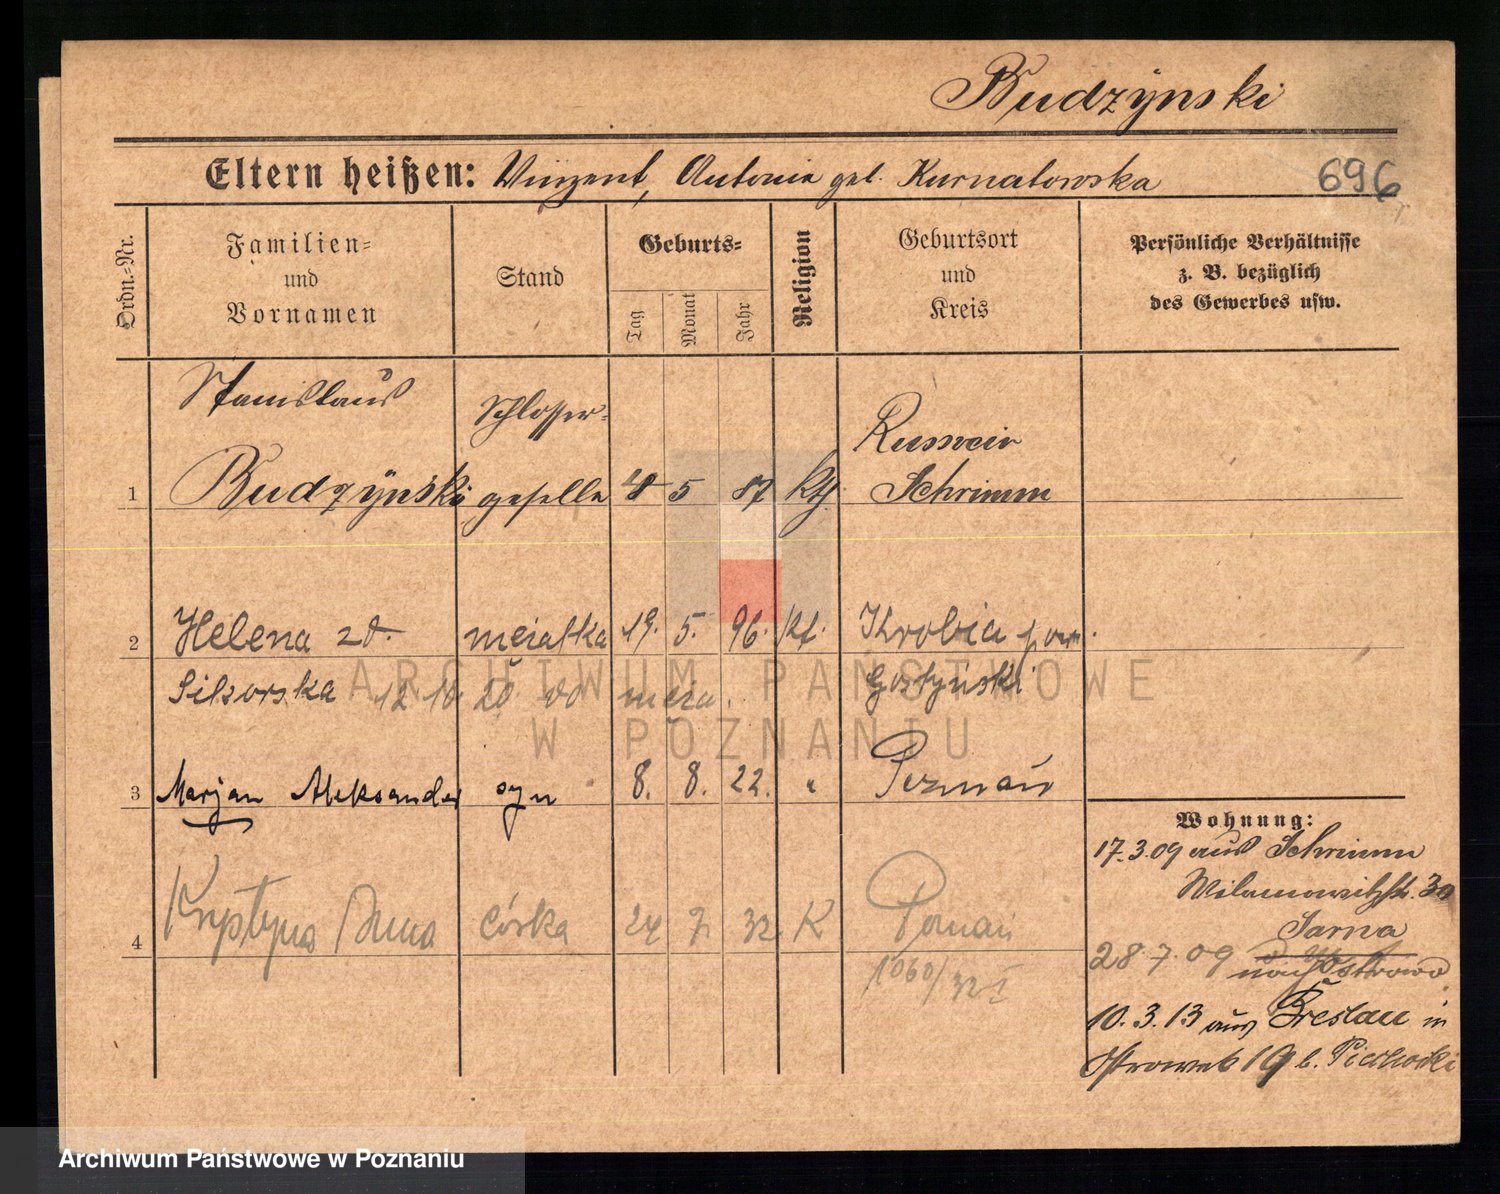 Budzynski
Eltern heißen: Vinzent, Antonie geb. Kurnatowska
696
Ordn.-Nr.
Familien-
und
Vornamen
Stand
Geburts-
Tag
Monat
Jahr
Religion
Geburtsort
und
Kreis
Persönliche Verhältnisse
z. B. bezüglich
des Gewerbes usw.
Stanislaus
Schlosser-
Schrimm
1 Budzyński geselle 5 87 kth.
2 Helena zd. mężatka 19. 5. 96. kt. Krobia pow.
Sikorska Gostyński
3 Marjan Aleksander syn 8. 8. 22. " Poznań
4 Krystyna Anna córka 24 7. 32. K Poznań
1060/32 I
Wohnung:
17.3.09 aus Schrimm
Sarna
28.7.09 nach Ostrowo
10.3.13 aus Breslau in
19 b. Piechocki
ARCHIWUM PAŃSTWOWE
W POZNANIU
Archiwum Państwowe w Poznaniu